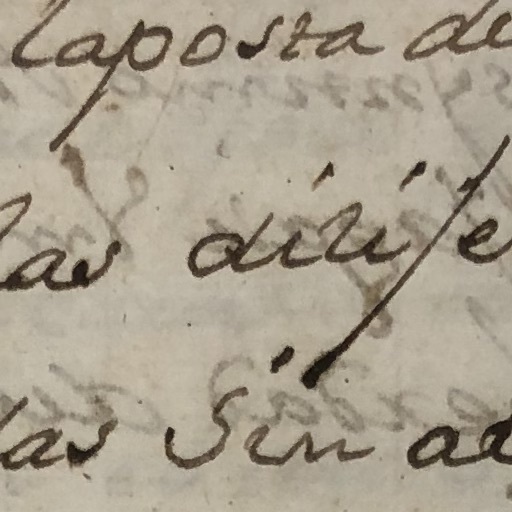 laposta de
las dirije
las Sin ad